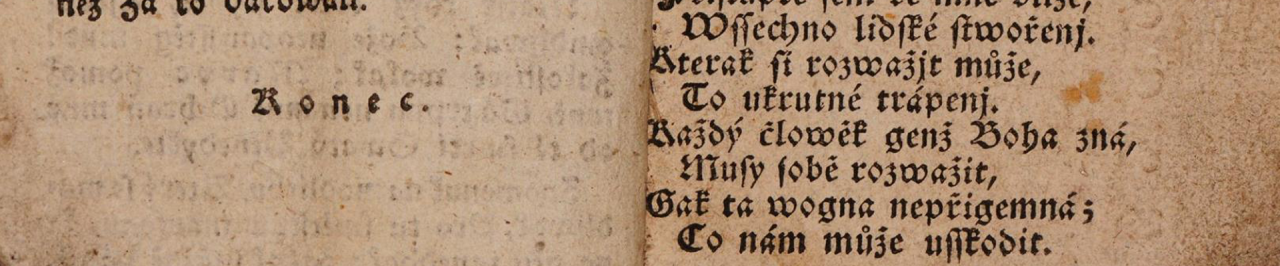 než za to darowali.
Konec.
Wſſechno lidſké ſtwořenj.
Kterak ſi rozwažjt může,
To ukrutné trápenj.
Každý člowěk genž Boha zná,
Muſy ſobě rozwažit,
Gak ta wogna nepřigemná;
Co nám může uſſkodit.